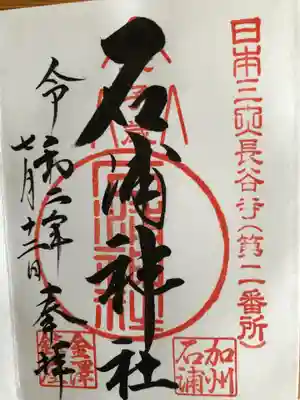 日本三大長谷寺(第二番所)
石浦神社
令和二年
七月十二日
奉拝
加州
石浦
金澤